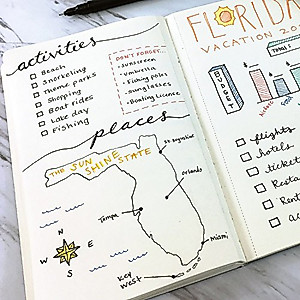 activities
Beach
Snorkeling
Theme parks
Shopping
Boat rides
Lake day
Fishing
DON'T FORGET...
-sunscreen
-umbrella
-Fishing poles
-sunglasses
-Boating Licence
places
THE SUN
SHINE STATE
St. Augustine
Orlando
Tampa
Miami
Key
west
N
W
E
S
FLORIDA
VACATION 20
BUDGET
flights
hotels
ticket
Resta
Renta